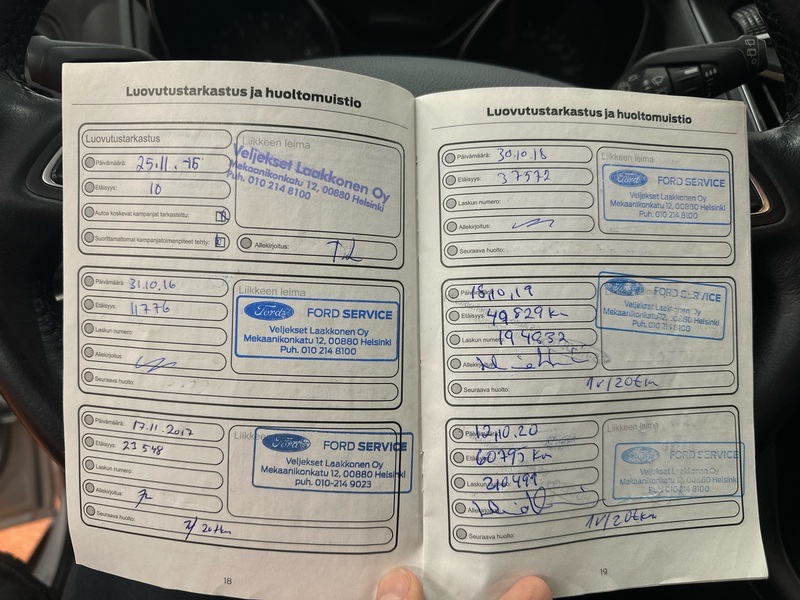 Luovutustarkastus ja huoltomuistio
Luovutustarkastus
Päivämäärä: 25.11.-15
Etäisyys: 10
Autoa koskevat kampanjat tarkastettu:
Suorittamattomat kampanjatoimenpiteet tehty:
Liikkeen leima
Veljekset Laakkonen Oy
Mekaanikonkatu 12, 00880 Helsinki
Puh. 010 214 8100
Allekirjoitus:
Päivämäärä: 31.10.16
Etäisyys: 11776
Laskun numero:
Allekirjoitus:
Seuraava huolto:
Liikkeen leima
Ford FORD SERVICE
Veljekset Laakkonen Oy
Mekaanikonkatu 12, 00880 Helsinki
Puh. 010 214 8100
Päivämäärä: 17.11.2017
Etäisyys: 23548
Laskun numero:
Allekirjoitus:
Seuraava huolto:
Ford FORD SERVICE
Veljekset Laakkonen Oy
Mekaanikonkatu 12, 00880 Helsinki
puh. 010-214 9023
18
Luovutustarkastus ja huoltomuistio
Päivämäärä: 30.10.18
Etäisyys: 37572
Laskun numero:
Allekirjoitus:
Seuraava huolto:
Liikkeen leima
Ford FORD SERVICE
Veljekset Laakkonen Oy
Mekaanikonkatu 12, 00880 Helsinki
Puh. 010 214 8100
18.10.19
Etäisyys: 49829 km
Laskun numero: 194832
Seuraava huolto: 1v/20tkm
FORD SERVICE
Veljekset Laakkonen Oy
Mekaanikonkatu 12, 00880 Helsinki
Puh. 010 214 8100
12.10.20
60793 km
210499
Seuraava huolto: 1v/20tkm
Liikkeen leima
FORD SERVICE
Veljekset Laakkonen Oy
Mekaanikonkatu 12, 00880 Helsinki
Puh. 010 214 8100
19